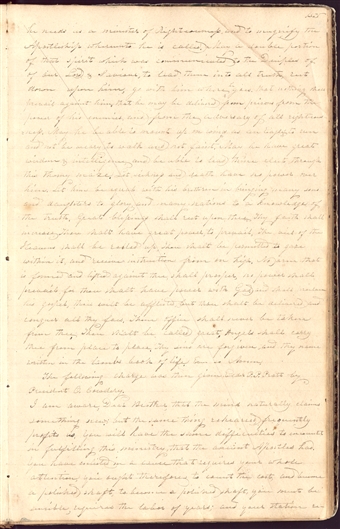 he needs as a minister of righteousness, and to magnify the
Apostleship whereunto he is called. May a double portion
of that Spirit which was communicated to the disciples of
of our Lord & Saviour, to lead them into all truth rest
down upon him, go with him where he goes that nothing shall
prevail against him, that he may be delivered from prisons from the
power of his enemies, and from the adversary of all righteous-
ness. May he be able to mount up on wings as an eagle, to run
and not be weary, to walk and not faint. May he have great
wisdom & intelligence, and be able to lead thine elect through
this thorny maze. Let sickness and death have no power over
him, let him be equal with his brethren in bringing many sons
and daughters to glory, and many nations to a knowledge of
the truth. Great blessings shall rest upon thee, thy faith shall
increase, thou shalt have great power to prevail. The veil of the
heavens shall be rolled up, thou shalt be permitted to gaze
within it, and receive instruction from on high. No arm that
is formed and lifted against thee shall prosper, no power shall
prevail for thou shalt have power with God and shall proclaim
his gospel, thou wilt be afflicted but thou shalt be delivered and
conquer all thy foes. Thine office shall never be taken
from thee, Thou shalt be called great, Angels shall carry
thee from place to place, Thy sins are forgiven, and thy name
written in the Lambs book of life, even so Amen.
The following charge was then given to P. P. Pratt by
President O. Cowdery.
I am aware, Dear Brother, that the mind naturally claims
something new, but the same thing rehearsed frequently
profits us. you will have the same difficulties to encounter
in fulfilling this ministry, that the ancient Apostles had.
you have enlisted in a cause that requires your whole
attention, you ought therefore, to count the cost, and become
a polished shaft, to become a polished shaft, you must be
sensible, requires the labor of years, and your station